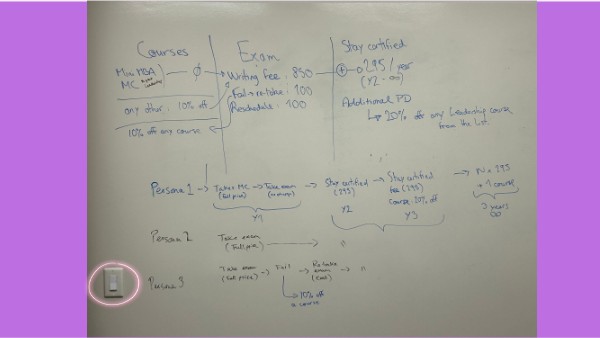 Courses
Exam
Stay certified
Mini MBA
MC
Ø
Writing fee : 850
⊕ → 295 / year
(Y2 - ∞)
Fail → re-take : 100
Reschedule : 100
any other : 10% off
10% off any course
Additional PD
↳ 20% off any Leadership course
from the list.
Persona 1 → Take MC → Take exam → Stay certified → Stay certified → N x 295
(full price)
(295)
fee (295)
+ 1 course
Course - 20% off
Y1
Y2
Y3
3 years
∞
Persona 2
Take exam
(full price)
"
Persona 3
Take exam → Fail → Re-take → "
(full price)
exam
↳ 10% off
a course